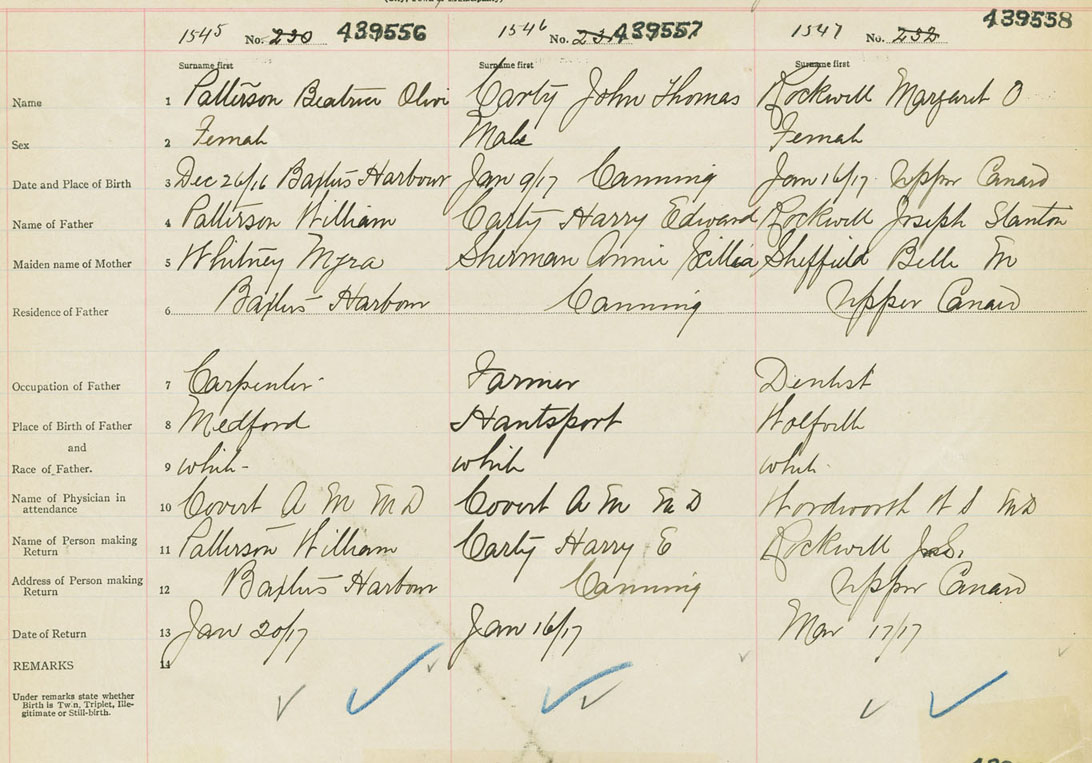 1545 No. 230 439556 1546 No. 231 439557 1547 No. 232 439558
Surname first Surname first Surname first
Name 1 Patterson Beatrice Olivi Carty John Thomas Rockwell Margaret O
Sex 2 Female Male Female
Date and Place of Birth 3 Dec 26/16 Baxters Harbour Jan 9/17 Canning Jan 16/17 Upper Canard
Name of Father 4 Patterson William Carty Harry Edward Rockwell Joseph Stanton
Maiden name of Mother 5 Whitney Myra Sherman Annie Sheffield Belle M
Residence of Father 6 Baxters Harbour Canning Upper Canard
Occupation of Father 7 Carpenter Farmer Dentist
Place of Birth of Father 8 Medford Hantsport Wolfville
and
Race of Father. 9 white white white
Name of Physician in
attendance 10 Covert A M M D Covert A M M D Wordworth W S MD
Name of Person making
Return 11 Patterson William Carty Harry E Rockwell
Address of Person making
Return 12 Baxters Harbour Canning Upper Canard
Date of Return 13 Jan 20/17 Jan 16/17 Mar 17/17
REMARKS 14
Under remarks state whether
Birth is Twin, Triplet, Ille-
gitimate or Still-birth.